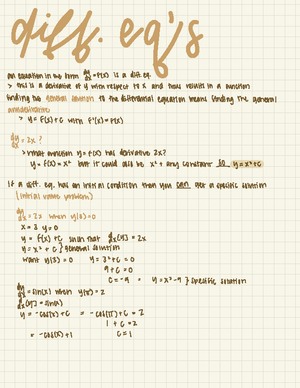 diff. eq's
an equation in the form dy/dx = F(x) is a diff eq.
> this is a derivative of y with respect to x and thus results in a function
finding the general solution to the differential equation means finding the general
antiderivative
> y = f(x) + C with f'(x) = F(x)
dy/dx = 2x ?
> what function y = f(x) has derivative 2x?
y = f(x) = x² but it could also be x² + any constant so y = x² + C
if a diff. eq. has an initial condition then you can get a specific solution
(initial value problem)
dy/dx = 2x when y(3) = 0
x = 3 y = 0
y = f(x) + C such that d/dx[y] = 2x
y = x² + C } general solution
want y(3) = 0 y = 3² + C = 0
9 + C = 0
C = -9 → y = x² - 9 } specific solution
dy/dx = sin(x) when y(π) = 2
d/dx[y] = sin(x)
y = -cos(x) + C = -cos(π) + C = 2
1 + C = 2
= -cos(x) + 1 C = 1